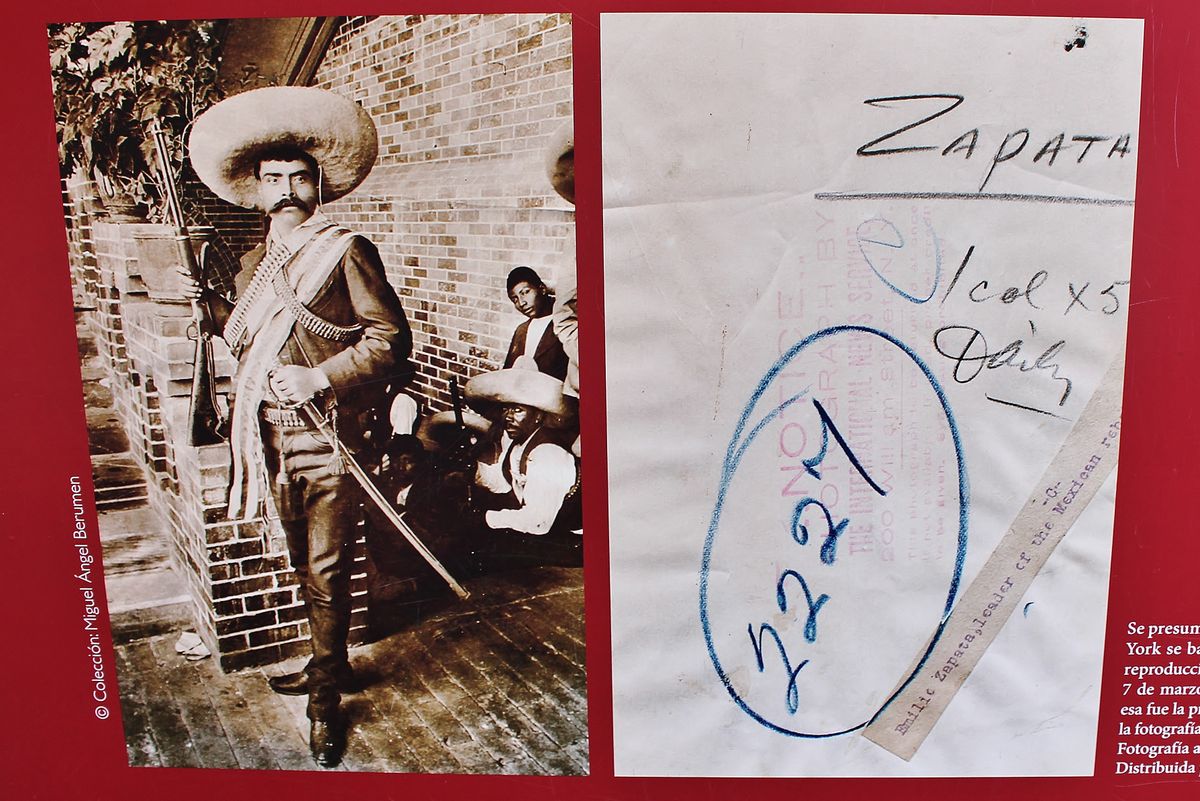 © Colección: Miguel Ángel Berumen
ZAPATA
1 col x 5
Daily
NOTICE
PHOTOGRAPH BY
THE INTERNATIONAL NEWS SERVICE
-0-
Emilio Zapata, leader of the Mexican reb
Se presum
York se ba
reproducci
7 de marzo
esa fue la pr
la fotografía
Fotografía a
Distribuida